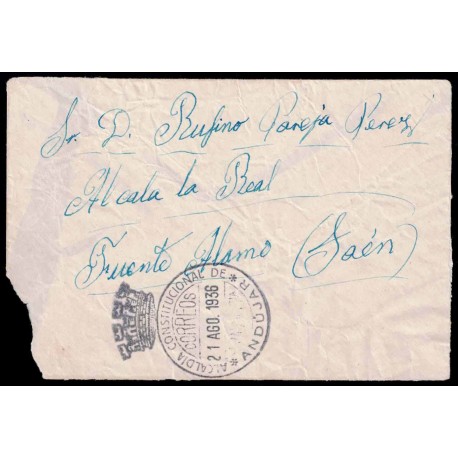 Sr. D. Rufino Pareja Perez
Alcala la Real
Fuente Alamo (Jaén)
ALCALDÍA CONSTITUCIONAL DE * ANDUJAR *
CORREOS
21 AGO. 1936